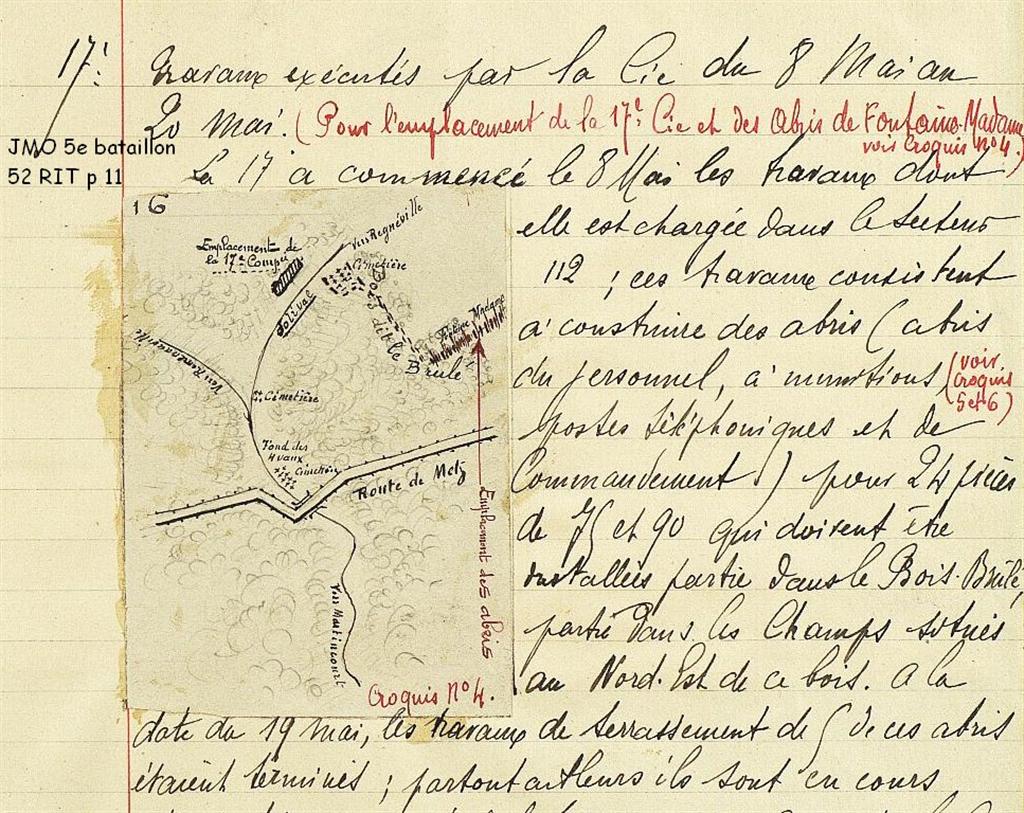 17e:
Travaux exécutés par la Cie du 8 Mai au
20 Mai. (Pour l'emplacement de la 17e Cie et des Abris de Fontaine-Madame
voir Croquis no 4.)
JMO 5e bataillon
52 RIT p 11
La 17 a commencé le 8 Mai les travaux dont
elle est chargée dans le secteur
112 ; ces travaux consistent
à construire des abris (abris
du personnel, à munitions (voir
Croquis
5 et 6)
postes téléphoniques et de
Commandement) pour 24 pièces
de 75 et 90 qui doivent être
installées partie dans le Bois-Brûlé,
partie dans les Champs situés
au Nord-Est de ce bois. A la
date du 19 mai, les travaux de terrassement de 5 de ces abris
étaient terminés ; partout ailleurs ils sont en cours
16
Emplacement de
la 17e Compie
Vers Regnéville
Cimetière
Jolival
Bois dit le
Brulé
Madame
Cimetière
Fond des
4 vaux
Cimetière
Route de Metz
Vers Martincourt
Emplacement des abris
Croquis No 4.